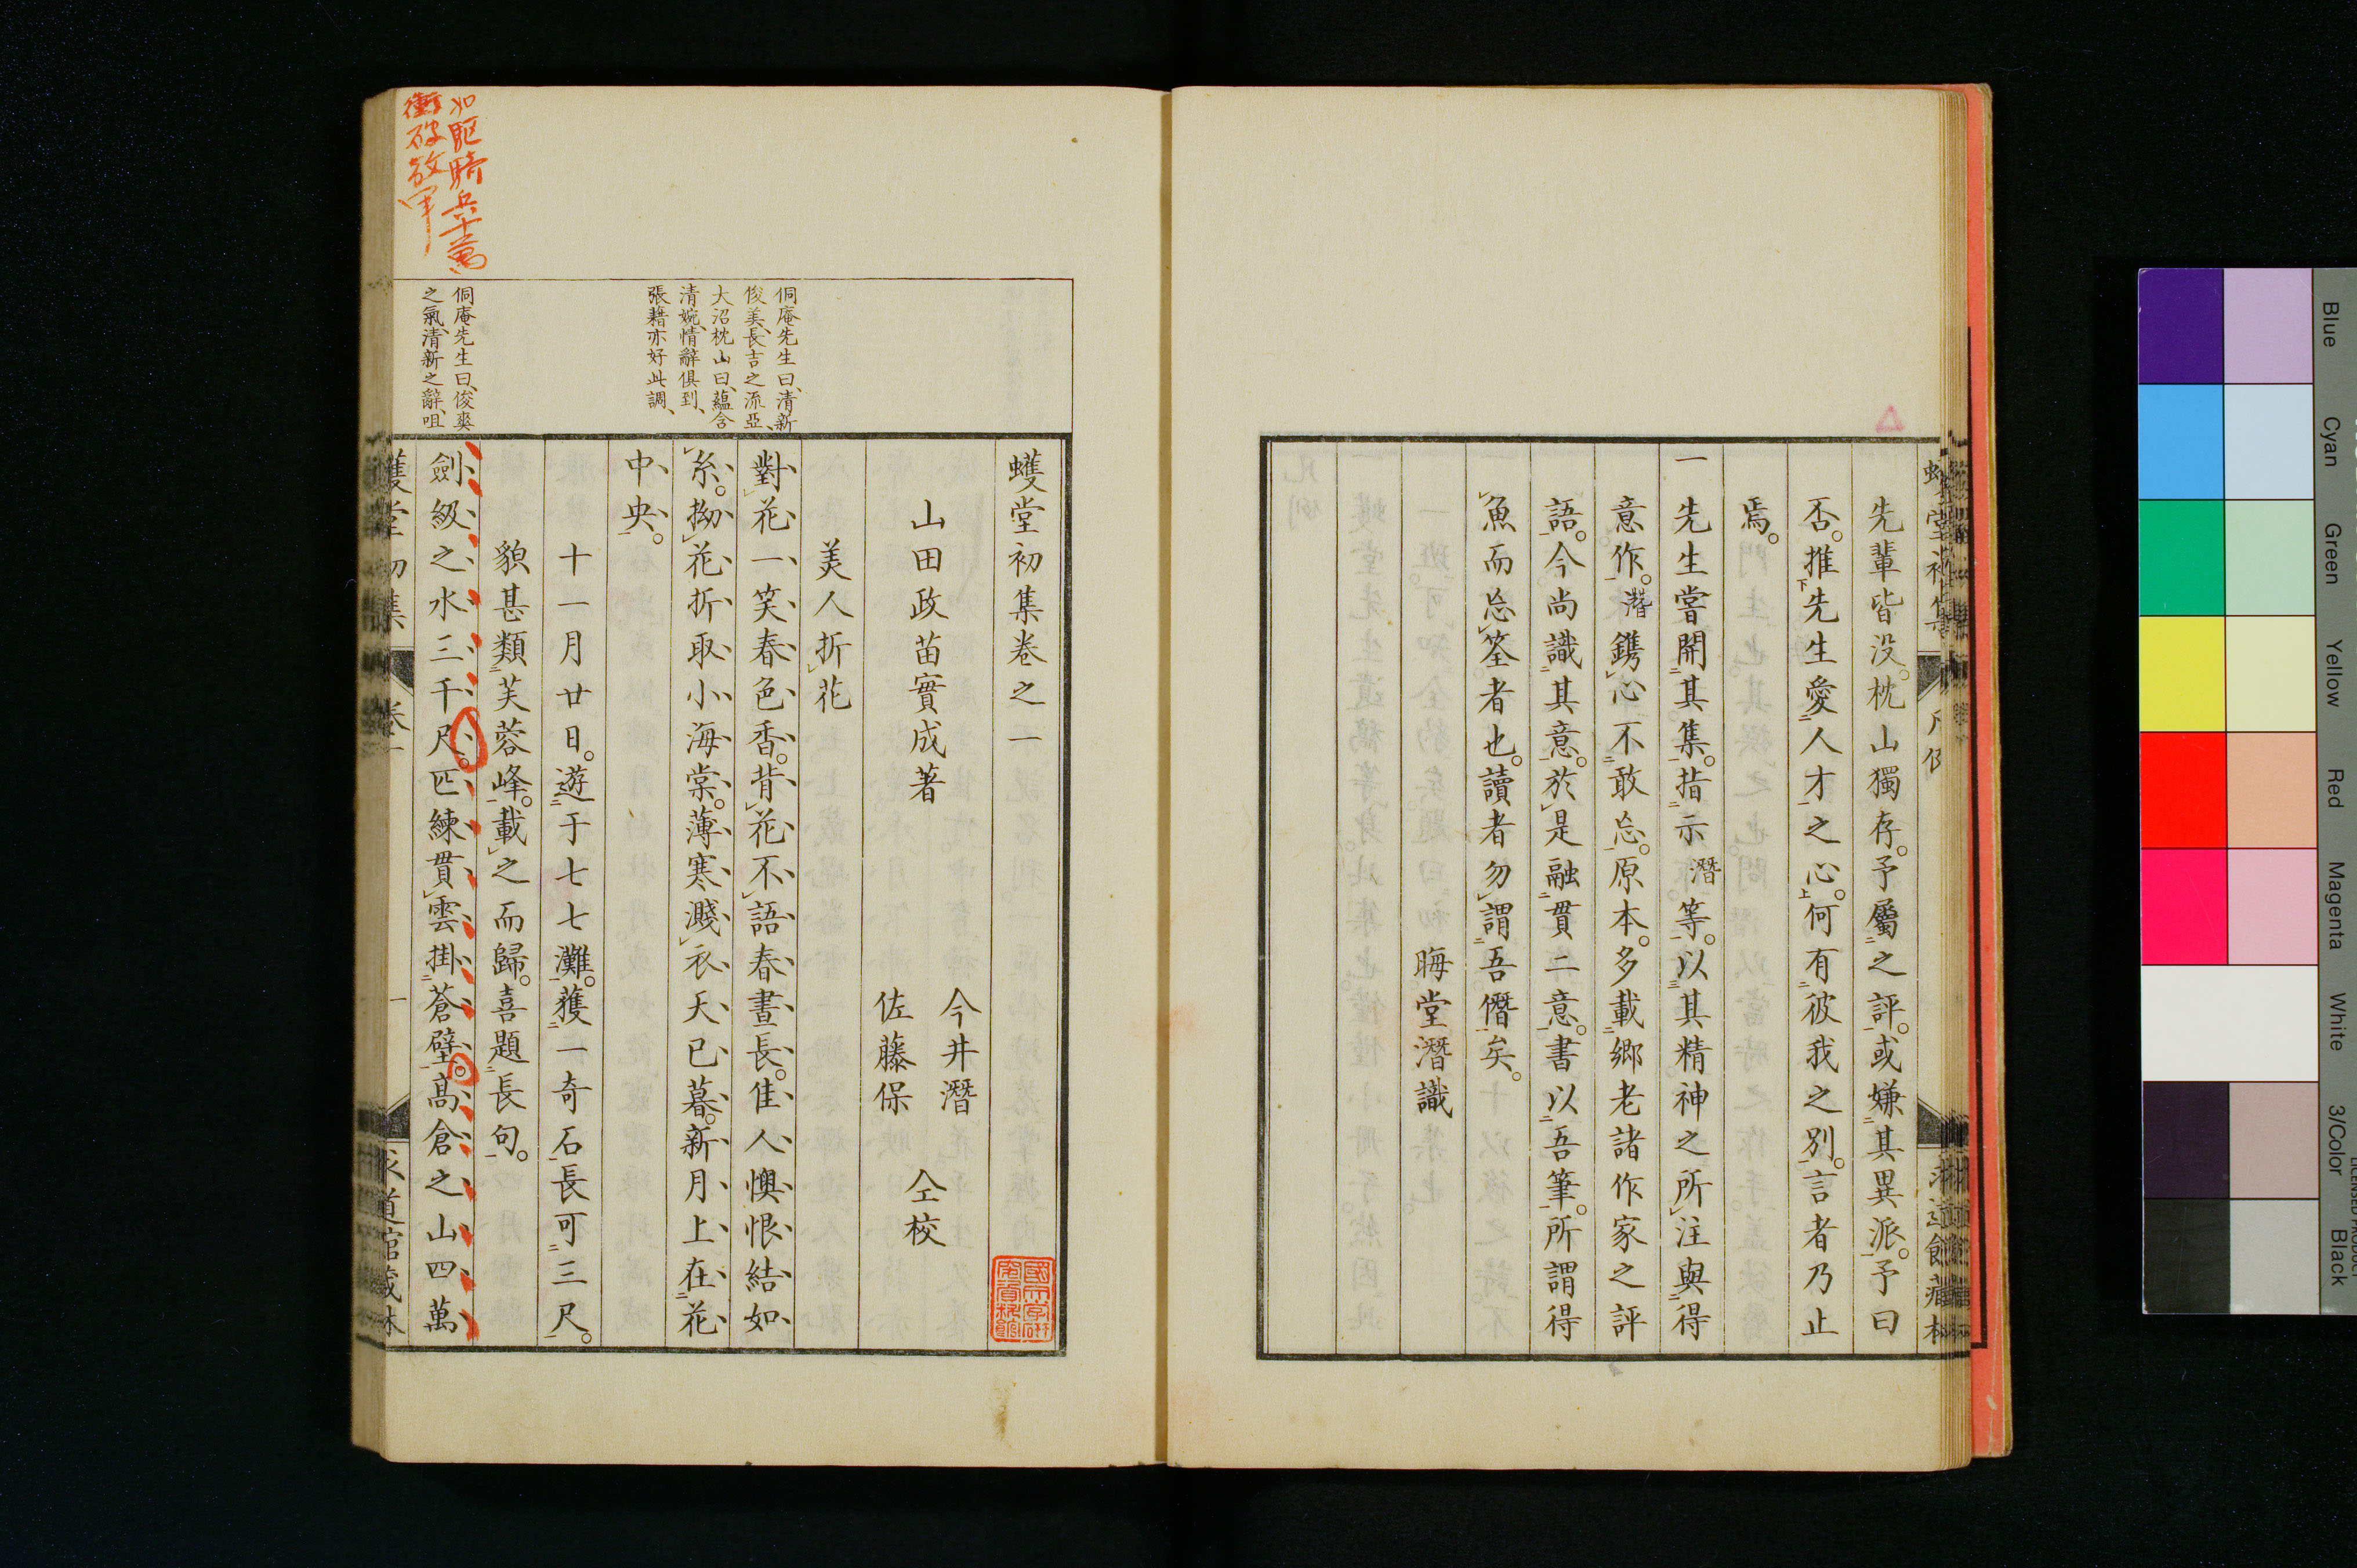 先輩皆没。枕山獨存。予屬之評。或嫌其異派。予曰
否。推先生愛人才之心。何有彼我之別。言者乃止
焉。
一先生嘗開其集。指示潛等。以其精神之所注與得
意作。潛鐫心不敢忘。原本。多載鄉老諸作家之評
語。今尚識其意。於是融貫二意。書以吾筆。所謂得
魚而忘筌者也。讀者勿謂吾僭矣。
晦堂潛識
蠖堂初集卷之一
山田政苗實成著
今井潛
佐藤保
仝校
美人折花
對花一笑春色香。背花不語春晝長。佳人懊恨結如
糸。拗花折取小海棠。薄寒濺衣天已暮。新月上在花
中央。
十一月廿日。遊于七七灘。獲一奇石長可三尺。
貌甚類芙蓉峰。載之而歸。喜題長句。
劍級之水三千尺。匹練貫雲掛蒼壁。高倉之山四萬
侗庵先生曰、清新
俊美、長吉之流亞、
大沼枕山曰、蘊含
清婉、情辭俱到、
張籍亦好此調、
侗庵先生曰、俊爽
之氣、清新之辭、咀
如駈騎兵十萬
衝破敵軍
Blue
Cyan
Green
Yellow
Red
Magenta
White
3/Color
Black